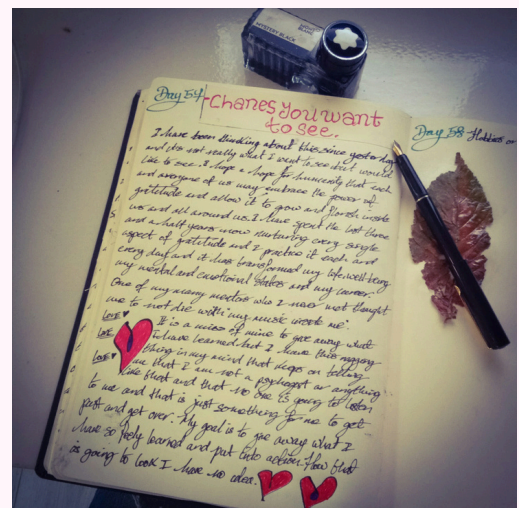 MYSTERY BLACK
MONT
BLANC
Day 54
-Chanes you want
to see.
Day 58 Hobbies or
I have been thinking about this since yesterday
and it's not really what I want to see but would
like to see. I hope a hope for humanity that each
and everyone of us may embrace the power of
gratitude and allow it to grow and florish inside
us and all around us. I have spent the last three
and a half years now nurturing every single
aspect of gratitude and I practice it each and
every day and it has transformed my life, well-being
my mental and emotional states and my career.
One of my many mentors who I never met thought
me to not die with "my music inside me".
Love ♥ It is a miss of mine to give away what
Love I have learned but I have this nagging
Love ♥ thing in my mind that keeps on telling
me that I am not a psychologist or anything
like that and that no one is going to listen
to me and that is just something for me to get
past and get over. My goal is to give away what I
have so freely learned and put into action. How that
is going to look I have no idea.